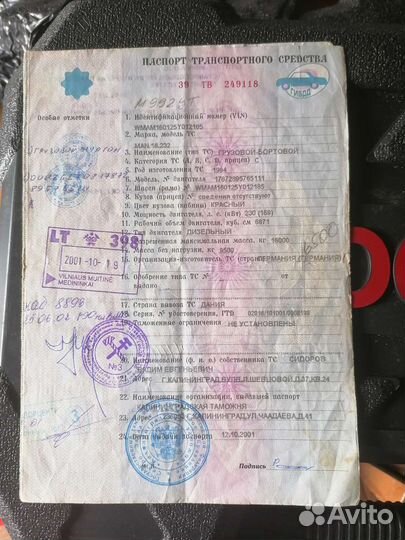 ПАСПОРТ ТРАНСПОРТНОГО СРЕДСТВА
39 ТВ 249118
ГИБДД
М992УТ
Особые отметки
1. Идентификационный номер (VIN)
WMAM160125Y012185
2. Марка, модель ТС
MAN.18.232
3. Наименование (тип ТС) ГРУЗОВОЙ-БОРТОВОЙ
4. Категория ТС (А, В, С, D, прицеп) C
5. Год изготовления ТС 1994
6. Модель, № двигателя 17672895765111
7. Шасси (рама) № WMAM160125Y012185
8. Кузов (прицеп) № сведения отсутствуют
9. Цвет кузова (кабины) КРАСНЫЙ
10. Мощность двигателя, л. с. (кВт) 230 (169)
11. Рабочий объем двигателя, куб. см 6871
12. Тип двигателя ДИЗЕЛЬНЫЙ
13. Разрешенная максимальная масса, кг 16000
14. Масса без нагрузки, кг 9500
15. Организация-изготовитель ТС (страна) ГЕРМАНИЯ (ГЕРМАНИЯ)
16. Одобрение типа ТС №
17. Страна вывоза ТС ДАНИЯ
18. Серия, № удостоверения, ГТД
19. Таможенные ограничения НЕ УСТАНОВЛЕНЫ
20. Наименование (ф. и. о.) собственника ТС СИДОРОВ
ВАДИМ ЕВГЕНЬЕВИЧ
21. Адрес Г.КАЛИНИНГРАД,
22. Наименование организации, выдавшей паспорт
КАЛИНИНГРАДСКАЯ ТАМОЖНЯ
23. Адрес Г.КАЛИНИНГРАД,УЛ.ЧААДАЕВА,Д.41
24. Дата выдачи паспорта 12.10.2001
М. П.
Подпись
LT 398
2001-10-19
VILNIAUS MUITINĖ
MEDININKAI
№3
Avito